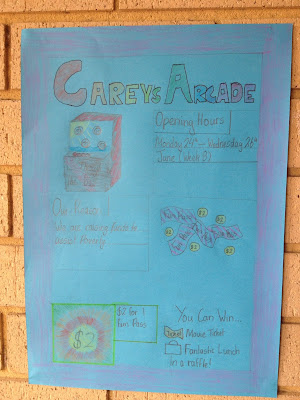 CAREYS ARCADE
Opening Hours
Monday 24th - Wednesday 26th
June (Week 3)
Our
We are raising funds to
assist Poverty
$2
$2
$2
$2
$2
$2 for 1
Fun Pass
$2
You Can Win...
Ticket Movie Ticket
Fantastic Lunch
in a raffle!